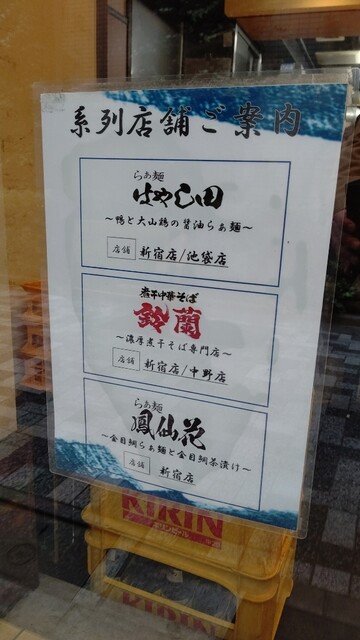 系列店舗ご案内
らぁ麺
はやし田
～鴨と大山鶏の醤油らぁ麺～
店舗 新宿店/池袋店
煮干中華そば
鈴蘭
～濃厚煮干そば専門店～
店舗 新宿店/中野店
らぁ麺
鳳仙花
～金目鯛らぁ麺と金目鯛茶漬け～
店舗 新宿店
KIRIN
KIRIN